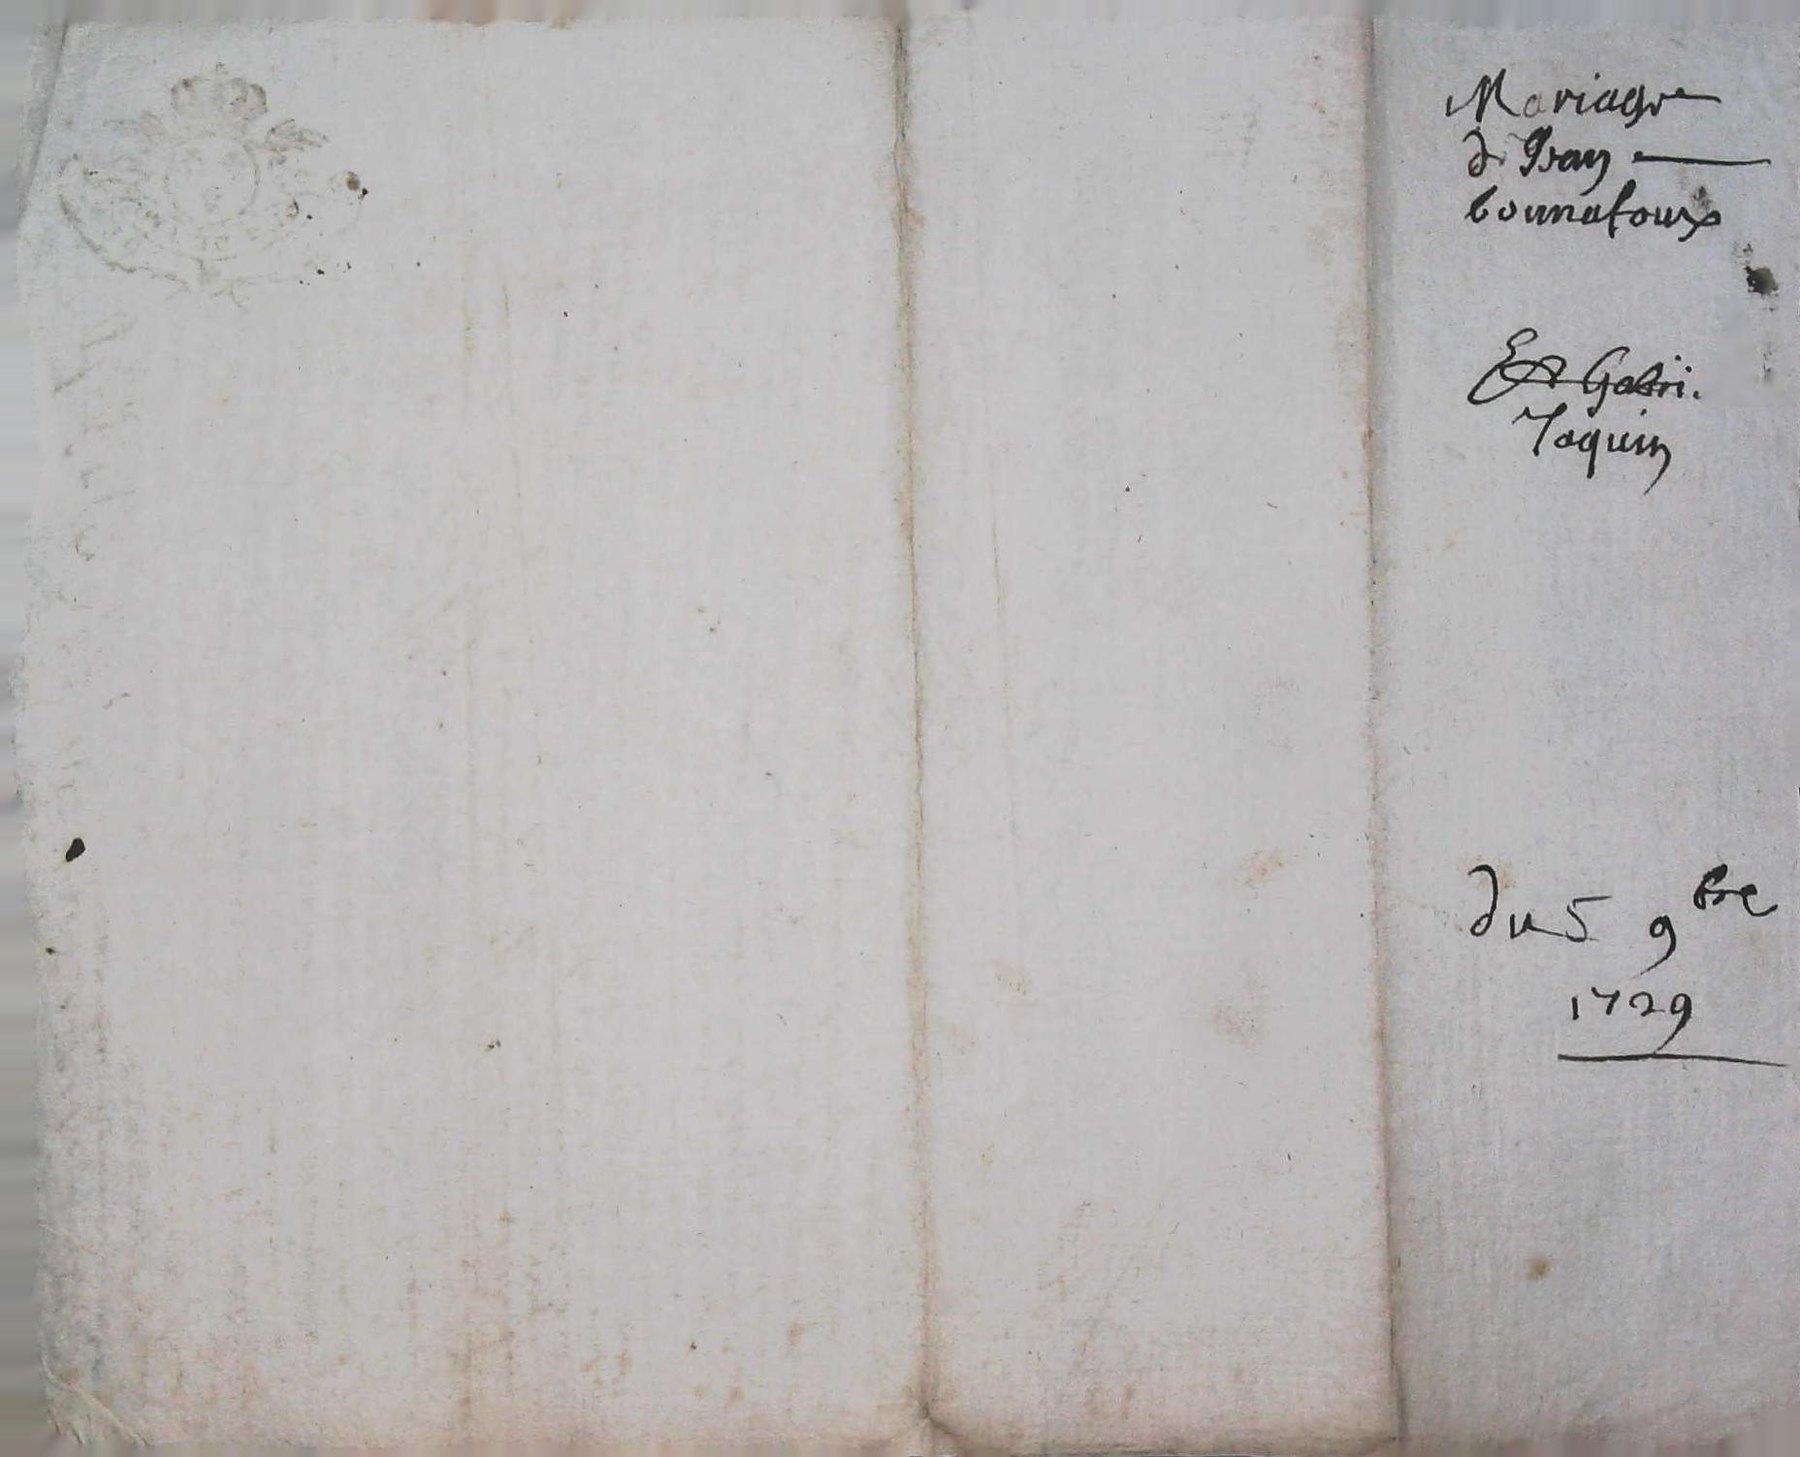 Mariage
de Jean
bonnafoux
Et Gabri.
Jaquin
du 5 9bre
1729